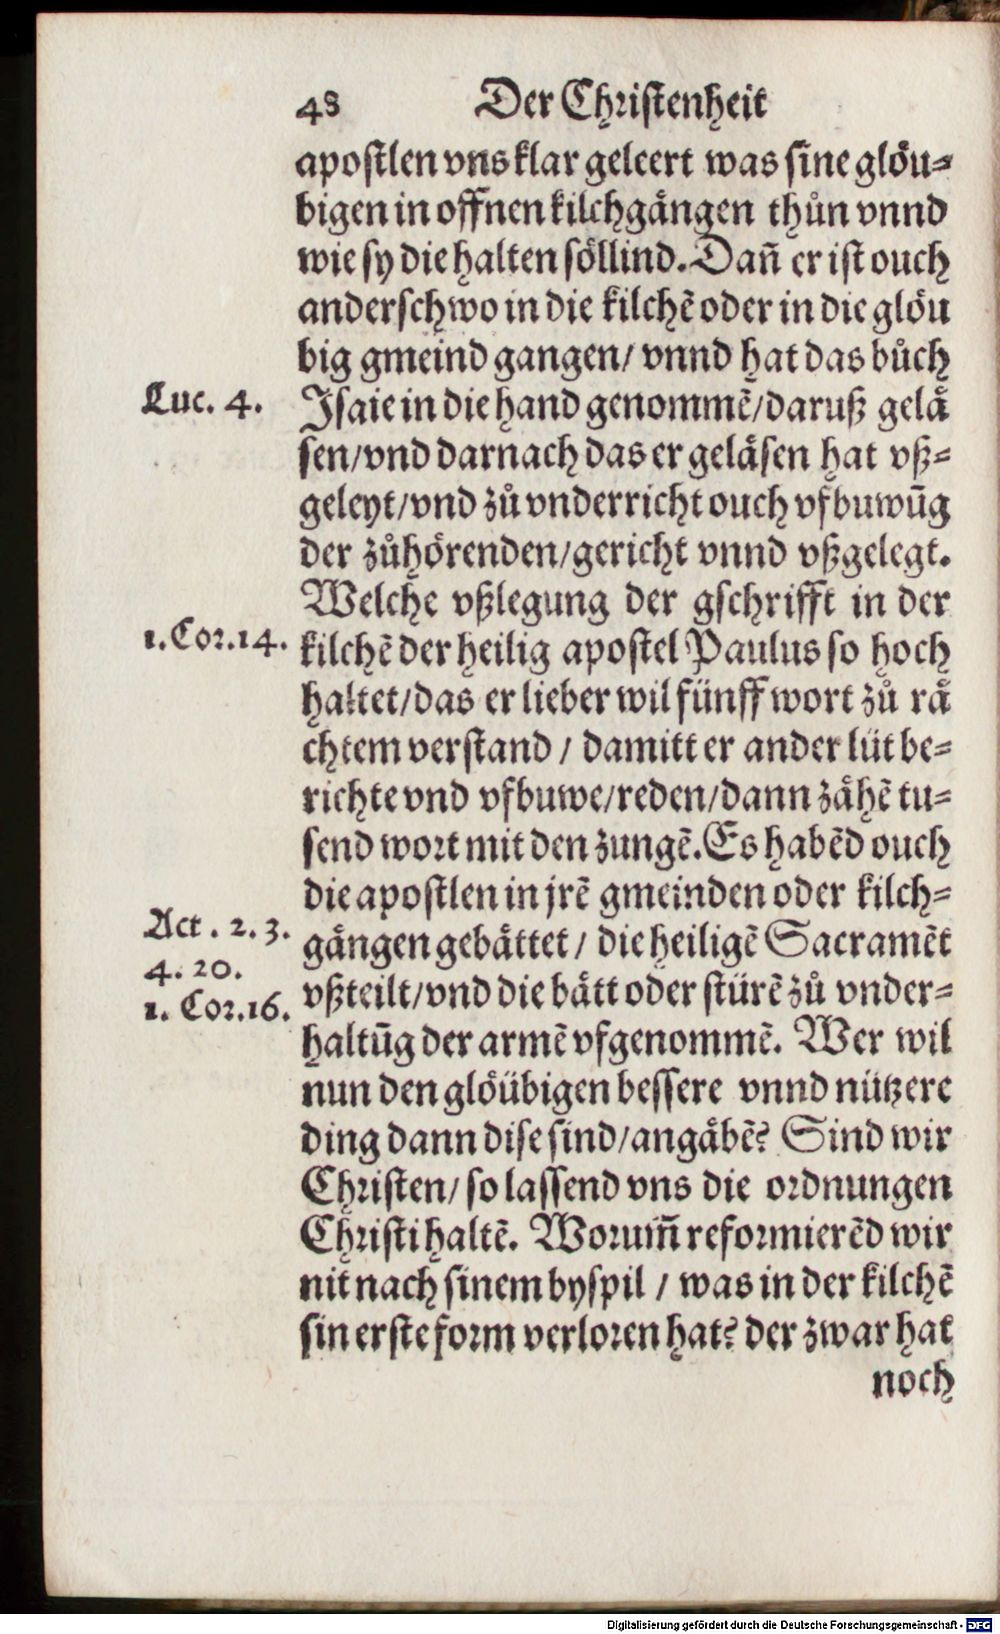 48 Der Christenheit
apostlen vns klar geleert was sine glöu-
bigen in offnen kilchgängen thůn vnnd
wie sy die halten söllind. Dañ er ist ouch
anderschwo in die kilchẽ oder in die glöu
big gmeind gangen/ vnnd hat das bůch
Luc. 4.
Jsaie in die hand genommẽ/daruß gelä
sen/vnd darnach das er geläsen hat vß-
geleyt/vnd zů vnderricht ouch vfbuwũg
der zůhörenden/gericht vnnd vßgelegt.
Welche vßlegung der gschrifft in der
1. Cor. 14.
kilchẽ der heilig apostel Paulus so hoch
haltet/das er lieber wil fünff wort zů rä
chtem verstand / damitt er ander lüt be-
richte vnd vfbuwe/reden/dann zähẽ tu-
send wort mit den zungẽ. Es habẽd ouch
die apostlen in jrẽ gmeinden oder kilch-
Act. 2. 3.
4. 20.
1. Cor. 16.
gängen gebättet / die heiligẽ Sacramẽt
vßteilt/vnd die bätt oder stürẽ zů vnder-
haltũg der armẽ vfgenommẽ. Wer wil
nun den glöübigen bessere vnnd nützere
ding dann dise sind/angäbẽ? Sind wir
Christen/ so lassend vns die ordnungen
Christi haltẽ. Worum̃ reformierẽd wir
nit nach sinem byspil / was in der kilchẽ
sin erste form verloren hat? der zwar hat
noch
Digitalisierung gefördert durch die Deutsche Forschungsgemeinschaft - DFG